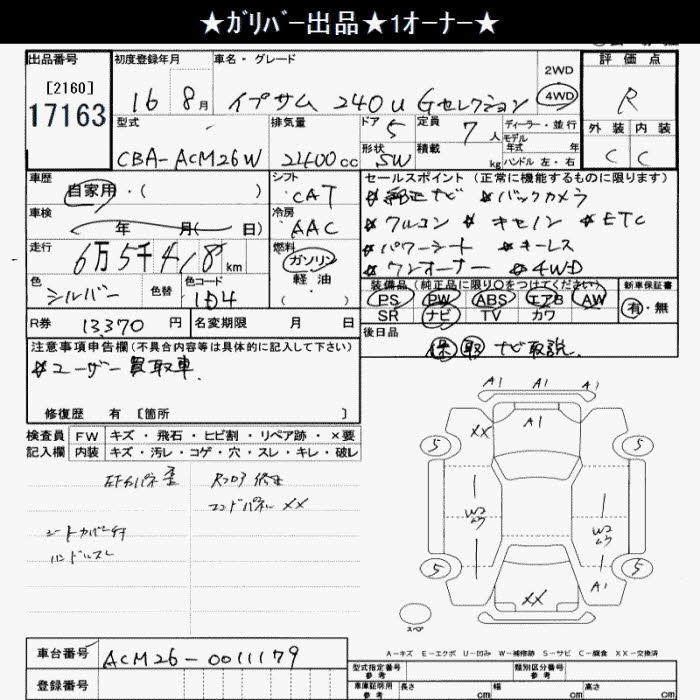 ★ガリバー出品★1オーナー★
出品番号
[2160]
17163
初度登録年月
16 8月
車名・グレード
イプサム 240u Gセレクション
2WD
4WD
評価点
R
外装 内装
C C
型式
CBA-ACM26W
排気量
2400cc
ドア 5
形状 SW
定員 7人
積載 kg
ディーラー・並行
モデル年式 年
ハンドル 左・右
車歴
自家用・( )
シフト
CAT
車検
年 月( 日)
冷房
AAC
走行
6万5千418km
燃料
ガソリン
軽油
( )
色
シルバー
色替
色コード
1D4
セールスポイント(正常に機能するものに限ります)
※純正ナビ ※バックカメラ
※アルコン ※キセノン ※ETC
※パワーシート ※キーレス
※ワンオーナー ※4WD
装備品(純正品に限り○をつけてください)
PS PW ABS エアB AW
SR ナビ TV カワ
新車保証書
有・無
R券 13370円
名変期限 月 日
後日品
保 取 ナビ取説
注意事項申告欄(不具合内容等は具体的に記入して下さい)
※ユーザー買取車
修復歴 有 [箇所 ]
検査員 FW キズ・飛石・ヒビ割・リペア跡・×要
記入欄 内装 キズ・汚レ・コゲ・穴・スレ・キレ・破レ
Rフロア修正
エンドパネル XX
シートカバー付
ハンドルスレ
A1 A1 A1
XX A1
5 5
W2 W2
5 5
A1
XX
スペア
A-キズ E-エクボ U-凹み W-補修跡 S-サビ C-腐食 XX-交換済
車台番号 ACM26-0011179
登録番号
型式指定番号 参考
類別区分番号 参考
車庫証明用 参考
長さ cm 幅 cm 高さ cm